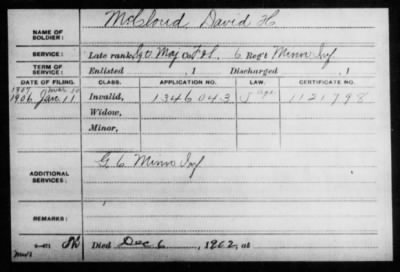 NAME OF SOLDIER: McCloud, David H
SERVICE: Late rank, Co. 6 Reg't Minn Inf
TERM OF SERVICE: Enlisted , 1 Discharged , 1
DATE OF FILING. CLASS. APPLICATION NO. LAW. CERTIFICATE NO.
1907
1906. Jan. 11 Invalid, 1346043 1121798
Widow,
Minor,
ADDITIONAL SERVICES: G 6 Minn Inf
REMARKS:
Died Dec 6, 1902, at